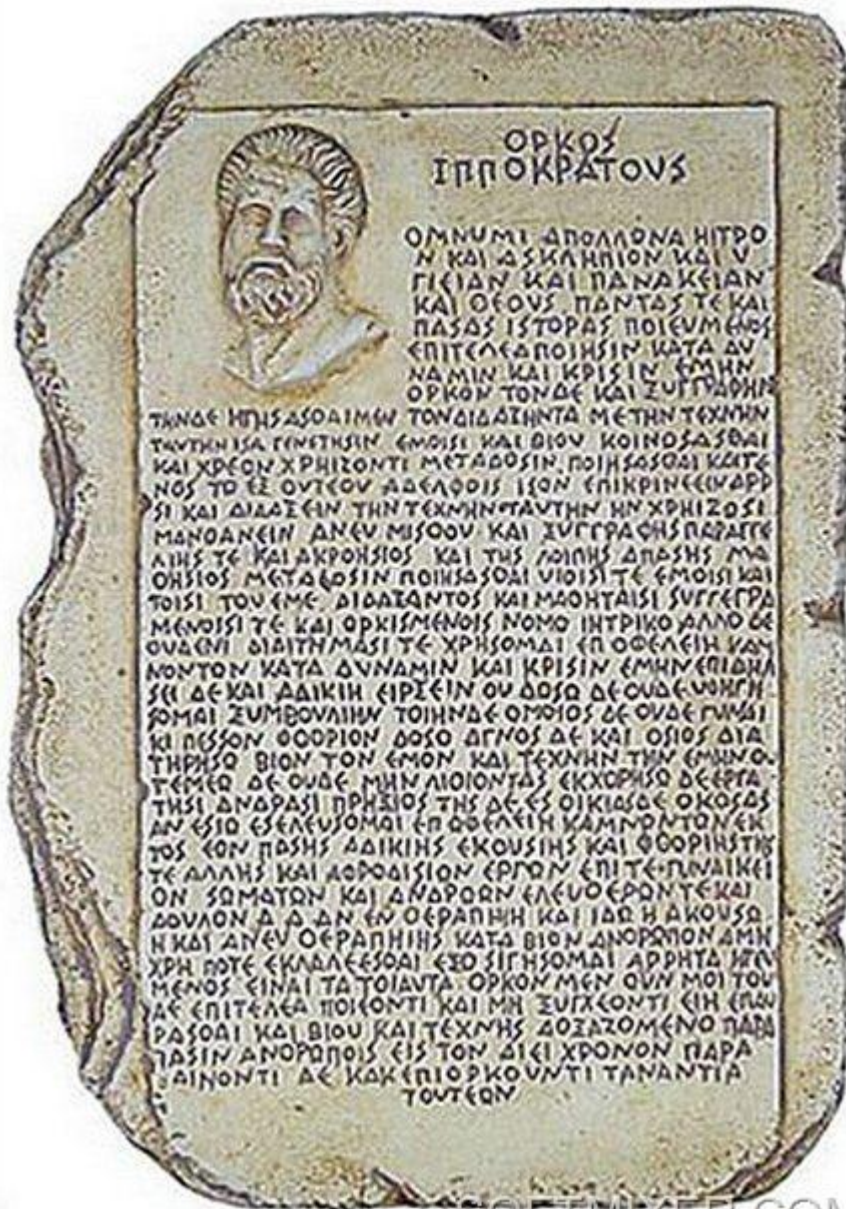 ΟΡΚΟΣ
ΙΠΠΟΚΡΑΤΟUS
ΟΜΝUΜΙ ΑΠΟΛΛΩΝΑ ΗΙΤΡΟ
Ν ΚΑΙ ΑΣΚΛΗΠΙΟΝ ΚΑΙ U
ΓΙΕΙΑΝ ΚΑΙ ΠΑΝΑΚΕΙΑΝ
ΚΑΙ ΘΕΟΥΣ ΠΑΝΤΑΣ ΤΕ ΚΑΙ
ΠΑΣΑΣ ΙΣΤΟΡΑΣ ΠΟΙΕΥΜΕΝΟΣ
ΕΠΙΤΕΛΕΑ ΠΟΙΗΣΙΝ ΚΑΤΑ ΔΥ
ΝΑΜΙΝ ΚΑΙ ΚΡΙΣΙΝ ΕΜΗΝ
ΟΡΚΟΝ ΤΟΝΔΕ ΚΑΙ ΞΥΓΓΡΑΦΗΝ
ΤΗΝΔΕ ΗΓΗΣΑΣΘΑΙ ΜΕΝ ΤΟΝ ΔΙΔΑΞΗΝΤΑ ΜΕ ΤΗΝ ΤΕΧΝΗΝ
ΤΑΥΤΗΝ ΙΣΑ ΓΕΝΕΤΗΣΙΝ ΕΜΟΙΣΙ ΚΑΙ ΒΙΟΥ ΚΟΙΝΟΣΑΣΘΑΙ
ΚΑΙ ΧΡΕΟΝ ΧΡΗΙΖΟΝΤΙ ΜΕΤΑΔΟΣΙΝ ΠΟΙΗΣΑΣΘΑΙ ΚΑΙ ΓΕ
ΝΟΣ ΤΟ ΕΞ ΟΥΤΕΟΥ ΑΔΕΛΦΟΙΣ ΙΣΟΝ ΕΠΙΚΡΙΝΕΕΙΝ ΑΡΡ
ΣΙ ΚΑΙ ΔΙΔΑΞΕΙΝ ΤΗΝ ΤΕΧΝΗΝ ΤΑΥΤΗΝ ΗΝ ΧΡΗΙΖΟΣΙ
ΜΑΝΘΑΝΕΙΝ ΑΝΕΥ ΜΙΣΘΟΥ ΚΑΙ ΞΥΓΓΡΑΦΗΣ ΠΑΡΑΓΓΕ
ΛΙΗΣ ΤΕ ΚΑΙ ΑΚΡΟΗΣΙΟΣ ΚΑΙ ΤΗΣ ΛΟΙΠΗΣ ΑΠΑΣΗΣ ΜΑ
ΘΗΣΙΟΣ ΜΕΤΑΔΟΣΙΝ ΠΟΙΗΣΑΣΘΑΙ ΥΙΟΙΣΙ ΤΕ ΕΜΟΙΣΙ ΚΑΙ
ΤΟΙΣΙ ΤΟΥ ΕΜΕ ΔΙΔΑΞΑΝΤΟΣ ΚΑΙ ΜΑΘΗΤΑΙΣΙ ΣΥΓΓΕΓΡΑ
ΜΕΝΟΙΣΙ ΤΕ ΚΑΙ ΟΡΚΙΣΜΕΝΟΙΣ ΝΟΜΟ ΙΗΤΡΙΚΟ ΑΛΛΟ ΔΕ
ΟΥΔΕΝΙ ΔΙΑΙΤΗΜΑΣΙ ΤΕ ΧΡΗΣΟΜΑΙ ΕΠ ΟΦΕΛΕΙΗ ΚΑΜ
ΝΟΝΤΩΝ ΚΑΤΑ ΔΥΝΑΜΙΝ ΚΑΙ ΚΡΙΣΙΝ ΕΜΗΝ ΕΠΙ ΔΗΛ
ΣΕΙ ΔΕ ΚΑΙ ΑΔΙΚΙΗ ΕΙΡΞΕΙΝ ΟΥ ΔΩΣΩ ΔΕ ΟΥΔΕ ΥΦΗΓΗ
ΣΟΜΑΙ ΞΥΜΒΟΥΛΙΗΝ ΤΟΙΗΝΔΕ ΟΜΟΙΟΣ ΔΕ ΟΥΔΕ ΓΥΝΑΙ
ΚΙ ΠΕΣΣΟΝ ΦΘΟΡΙΟΝ ΔΟΣΟ ΑΓΝΟΣ ΔΕ ΚΑΙ ΟΣΙΟΣ ΔΙΑ
ΤΗΡΗΣΩ ΒΙΟΝ ΤΟΝ ΕΜΟΝ ΚΑΙ ΤΕΧΝΗΝ ΤΗΝ ΕΜΗΝ Ο
ΤΕΜΕΩ ΔΕ ΟΥΔΕ ΜΗΝ ΛΙΘΙΟΝΤΑΣ ΕΚΧΟΡΗΣΩ ΔΕ ΕΡΓΑ
ΤΗΣΙ ΑΝΔΡΑΣΙ ΠΡΗΞΙΟΣ ΤΗΣ ΔΕ ΕΣ ΟΙΚΙΑΣ ΔΕ ΟΚΟΣΑΣ
ΑΝ ΕΣΙΩ ΕΣΕΛΕΥΣΟΜΑΙ ΕΠ ΩΦΕΛΕΙΗ ΚΑΜΝΟΝΤΩΝ ΕΚ
ΤΟΣ ΕΟΝ ΠΑΣΗΣ ΑΔΙΚΙΗΣ ΕΚΟΥΣΙΗΣ ΚΑΙ ΦΘΟΡΙΗΣ ΤΗΣ
ΤΕ ΑΛΛΗΣ ΚΑΙ ΑΦΡΟΔΙΣΙΩΝ ΕΡΓΩΝ ΕΠΙ ΤΕ ΓΥΝΑΙΚΕΙ
ΟΝ ΣΩΜΑΤΩΝ ΚΑΙ ΑΝΔΡΩΩΝ ΕΛΕΥΘΕΡΩΝ ΤΕ ΚΑΙ
ΔΟΥΛΟΝ Α Δ ΑΝ ΕΝ ΘΕΡΑΠΗΙΗ ΚΑΙ ΙΔΩ Η ΑΚΟΥΣΩ
Η ΚΑΙ ΑΝΕΥ ΘΕΡΑΠΗΙΗΣ ΚΑΤΑ ΒΙΟΝ ΑΝΘΡΩΠΟΝ Α ΜΗ
ΧΡΗ ΠΟΤΕ ΕΚΛΑΛΕΕΣΘΑΙ ΕΞΟ ΣΙΓΗΣΟΜΑΙ ΑΡΡΗΤΑ ΗΓΕΥ
ΜΕΝΟΣ ΕΙΝΑΙ ΤΑ ΤΟΙΑΥΤΑ ΟΡΚΟΝ ΜΕΝ ΟΥΝ ΜΟΙ ΤΟΥ
ΔΕ ΕΠΙΤΕΛΕΑ ΠΟΙΕΟΝΤΙ ΚΑΙ ΜΗ ΞΥΓΧΕΟΝΤΙ ΕΙΗ ΕΠΑΥ
ΡΑΣΘΑΙ ΚΑΙ ΒΙΟΥ ΚΑΙ ΤΕΧΝΗΣ ΔΟΞΑΖΟΜΕΝΟ ΠΑΡΑ
ΠΑΣΙΝ ΑΝΘΡΩΠΟΙΣ ΕΙΣ ΤΟΝ ΑΙΕΙ ΧΡΟΝΟΝ ΠΑΡΑ
ΒΑΙΝΟΝΤΙ ΔΕ ΚΑΚ ΕΠΙΟΡΚΟΥΝΤΙ ΤΑΝΑΝΤΙΑ
ΤΟΥΤΕΩΝ